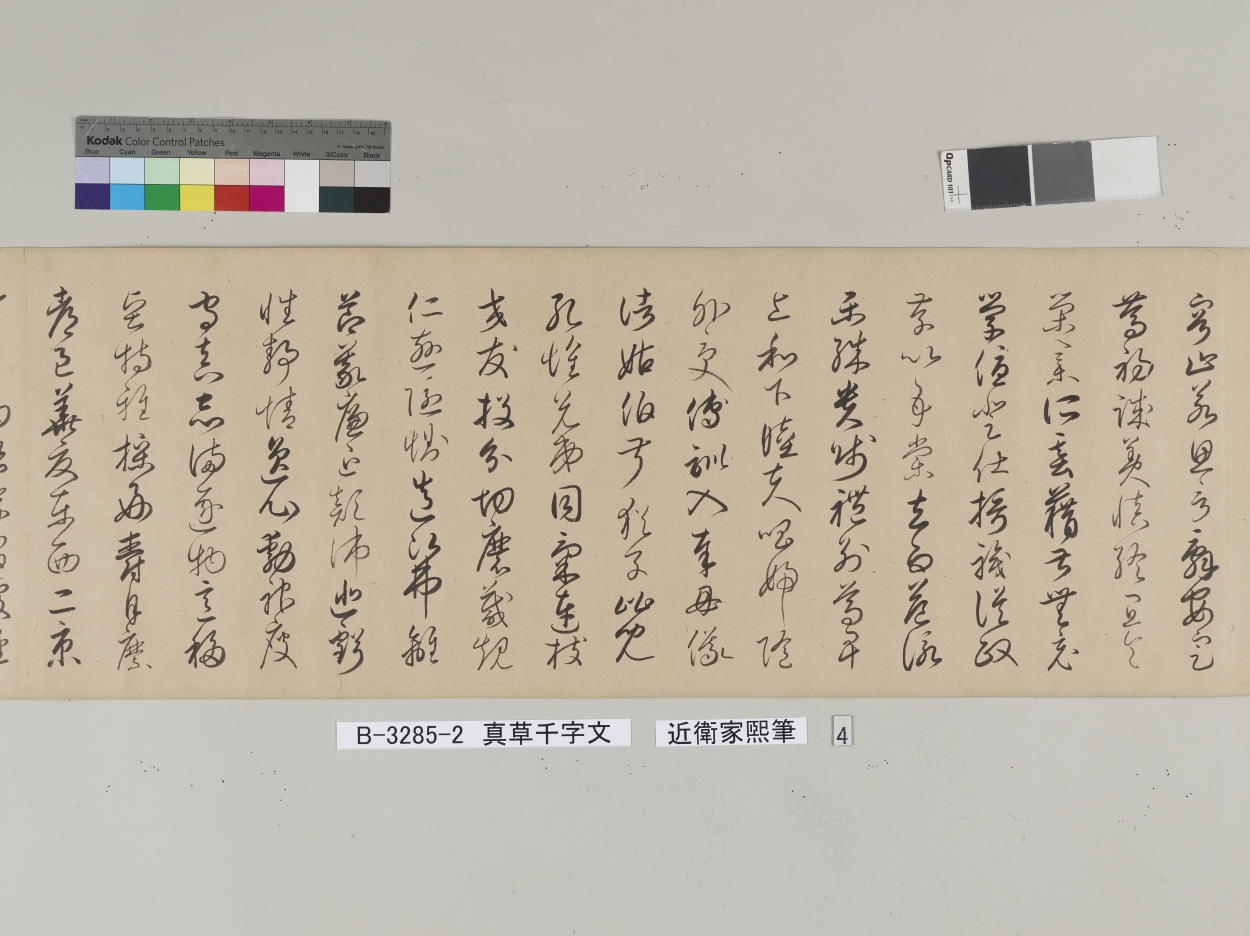 Kodak Color Control Patches
Blue Cyan Green Yellow Red Magenta White 3/Color Black
QPCARD 101
容止若思言辭安定
篤初誠美慎終宜令
榮業所基籍甚無竟
學優登仕攝職從政
存以甘棠去而益詠
樂殊貴賤禮別尊卑
上和下睦夫唱婦隨
外受傅訓入奉母儀
諸姑伯叔猶子比兒
孔懷兄弟同氣連枝
交友投分切磨箴規
仁慈隱惻造次弗離
節義廉退顛沛匪虧
性靜情逸心動神疲
守真志滿逐物意移
堅持雅操好爵自縻
都邑華夏東西二京
B-3285-2 真草千字文 近衛家熙筆 4